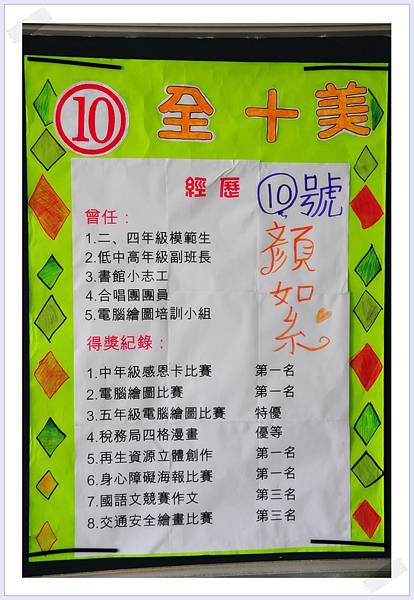 10 全 十 美
經歷 10號
顏如糸
曾任：
1.二、四年級模範生
2.低中高年級副班長
3.書館小志工
4.合唱團團員
5.電腦繪圖培訓小組
得獎紀錄：
1.中年級感恩卡比賽 第一名
2.電腦繪圖比賽 第一名
3.五年級電腦繪圖比賽 特優
4.稅務局四格漫畫 優等
5.再生資源立體創作 第一名
6.身心障礙海報比賽 第一名
7.國語文競賽作文 第三名
8.交通安全繪畫比賽 第三名